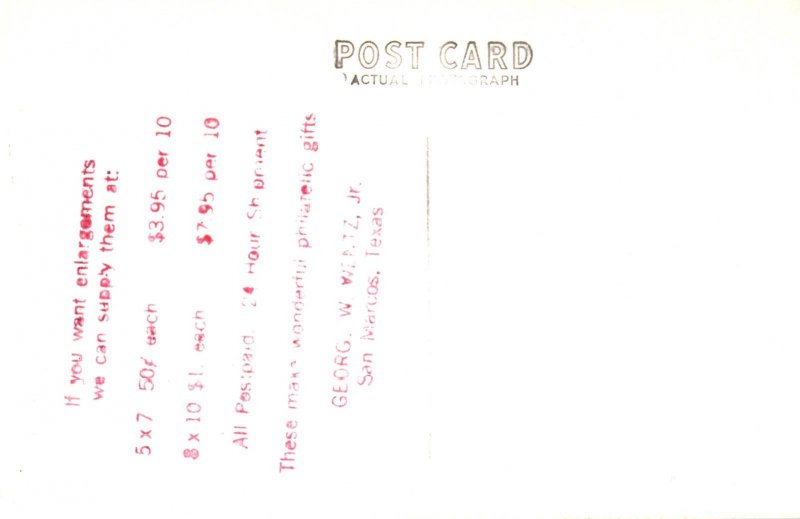 POST CARD
ACTUAL PHOTOGRAPH
If you want enlargements
we can supply them at:
5 x 7 50¢ each $3.95 per 10
8 x 10 $1. each $7.95 per 10
All Postpaid. 24 Hour Shipment
These make wonderful philatelic gifts
GEORG. W. Jr.
San Marcos, Texas